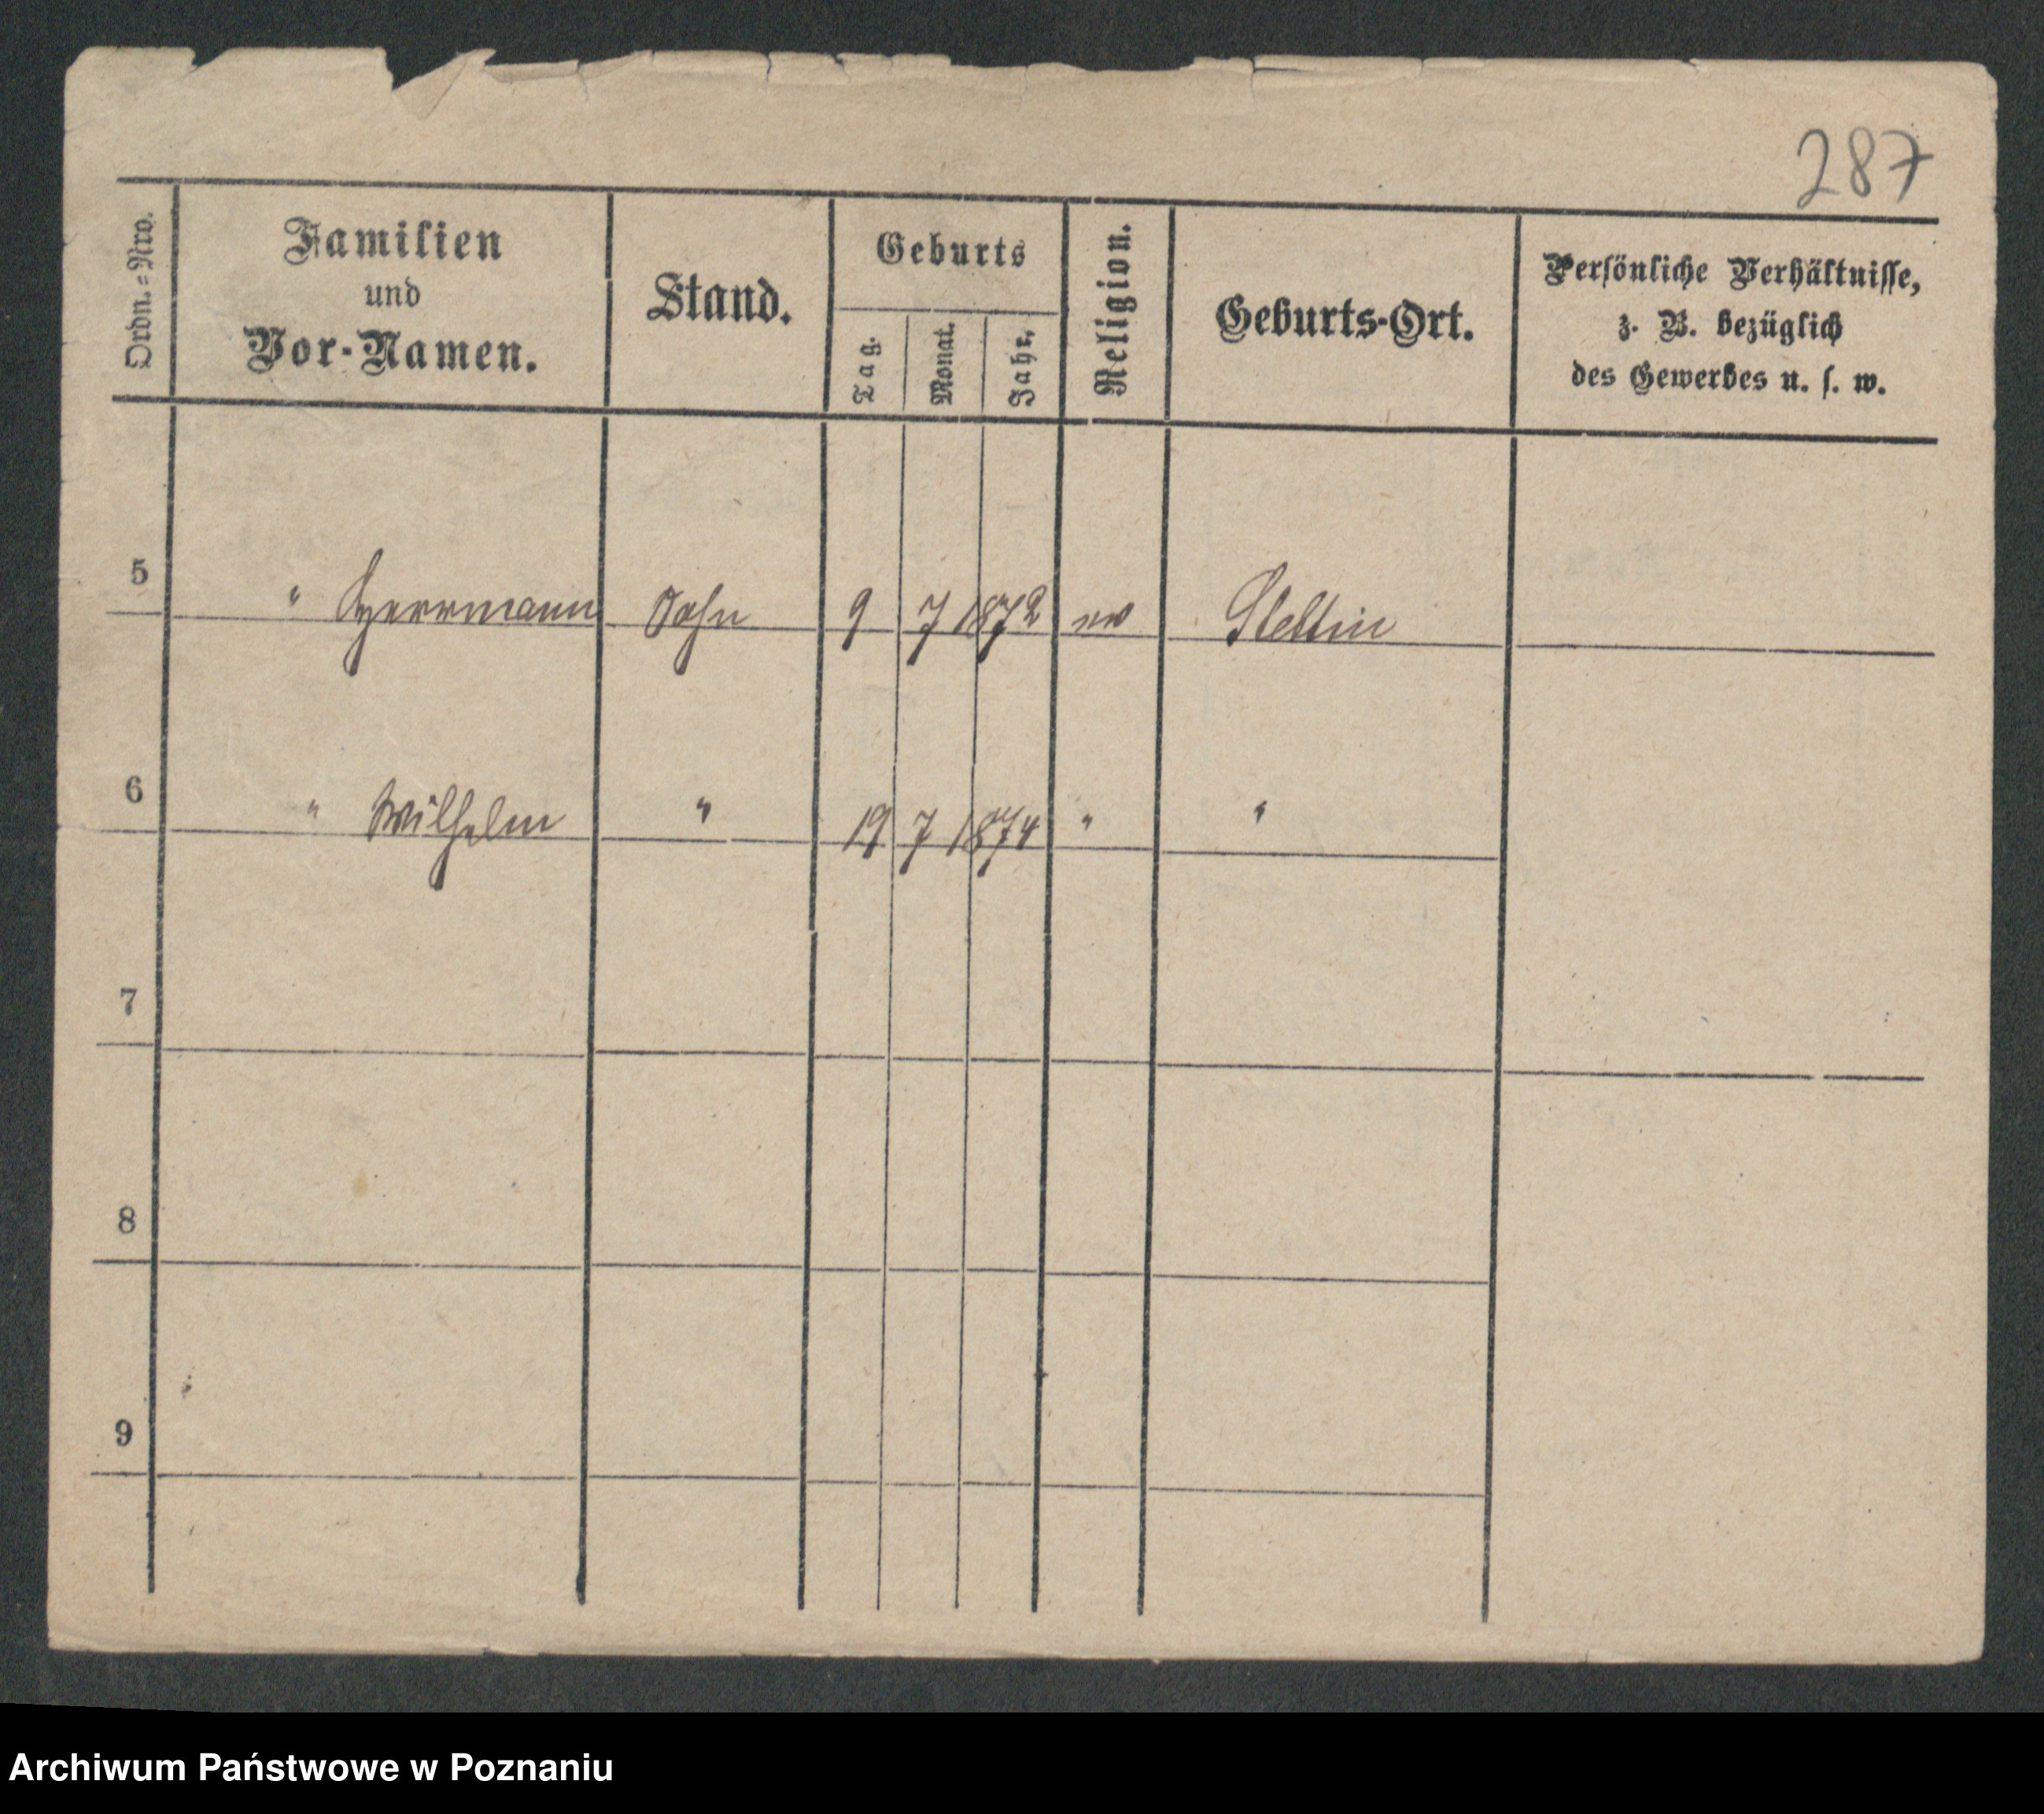 287
Ordn.=Nro.
Familien
und
Vor-Namen.
Stand.
Geburts
Tag.
Monat.
Jahr.
Religion.
Geburts-Ort.
Persönliche Verhältnisse,
z. B. bezüglich
des Gewerbes u. s. w.
5 " Herrmann Sohn 9 7 1872 ev Stettin
6 " Wilhelm " 19 7 1874 " "
7
8
9
Archiwum Państwowe w Poznaniu